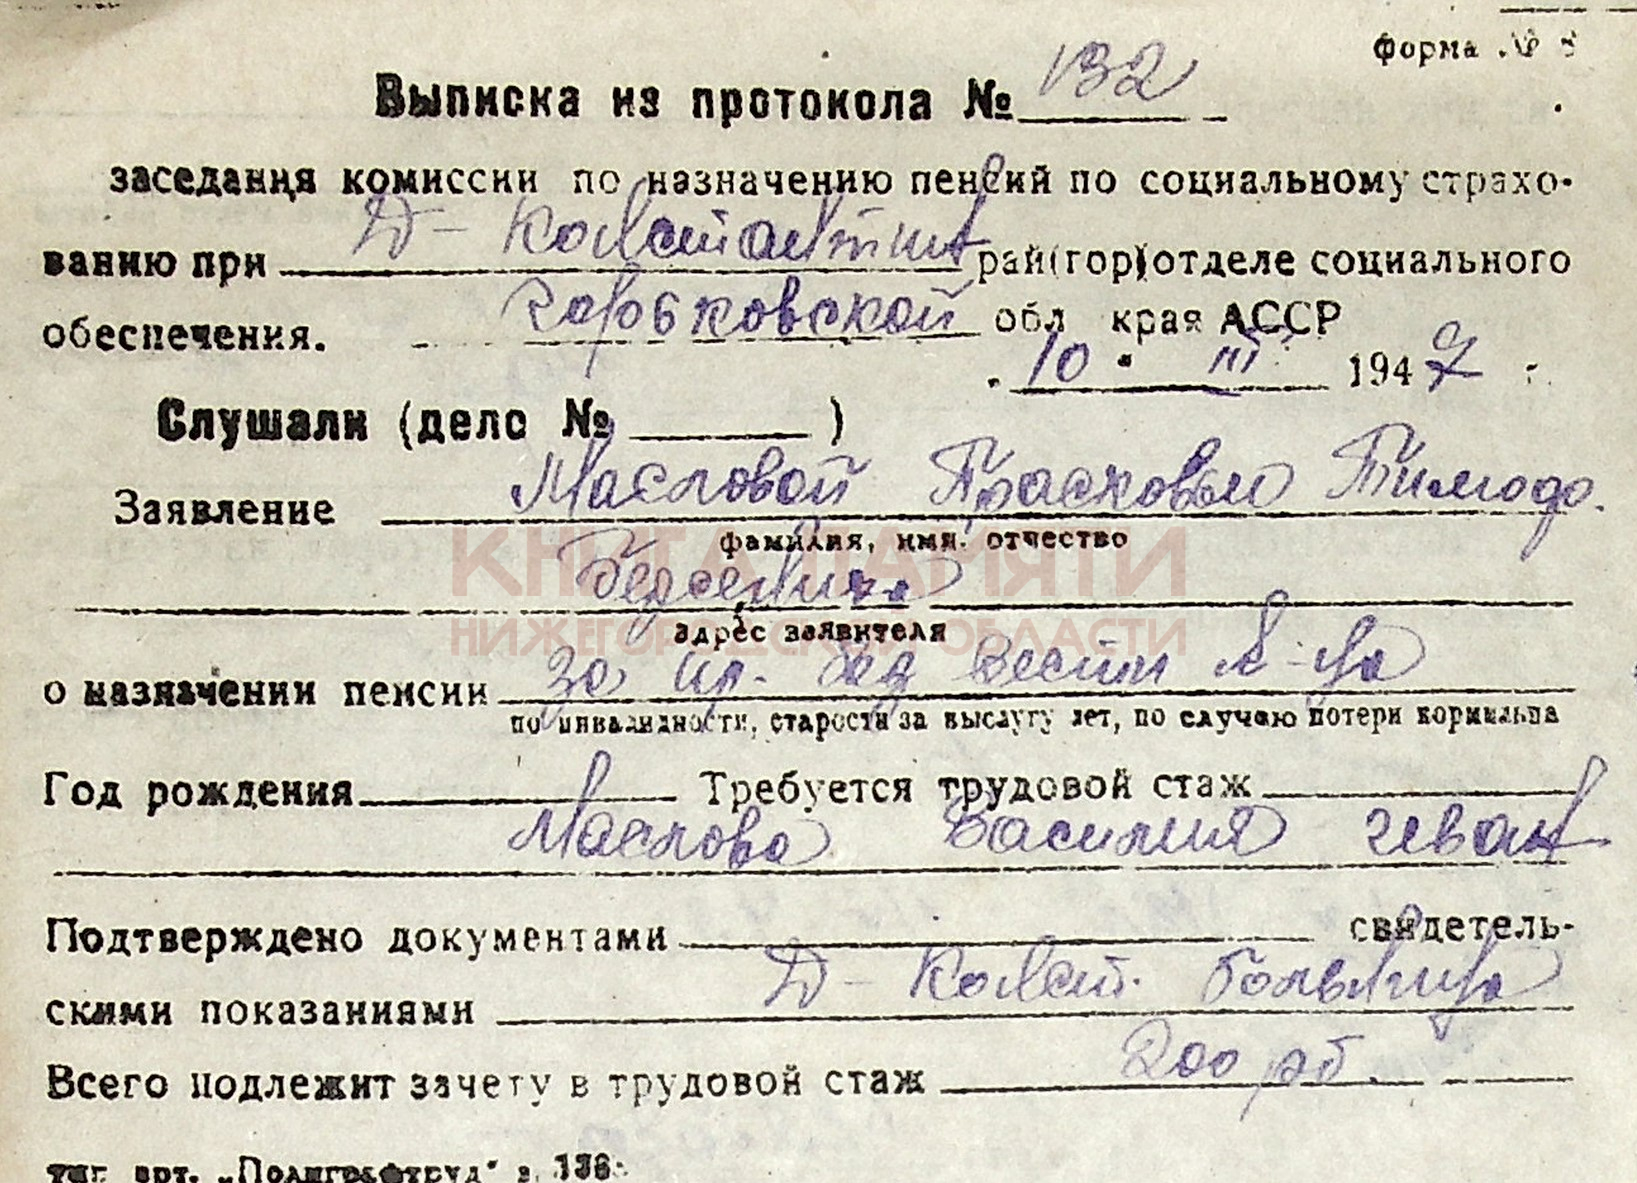 форма №
Выписка из протокола № 132
заседания комиссии по назначению пенсий по социальному страхо-
ванию при Д-Константин рай(гор)отделе социального
обеспечения. Горьковской обл края АССР
10 " III 1947 г.
Слушали (дело № )
Заявление Масловой Прасковьи
фамилия, имя, отчество
КНИГА ПАМЯТИ
адрес заявителя
НИЖЕГОРОДСКОЙ ОБЛАСТИ
о назначении пенсии за пр. без вести к-ца
по инвалидности, старости за выслугу лет, по случаю потери кормильца
Год рождения Требуется трудовой стаж
Маслова Василия Иван
Подтверждено документами свидетель-
скими показаниями Д-Конст. больница
Всего подлежит зачету в трудовой стаж 200 рб.
тип. арт. „Полиграфтруд" з.